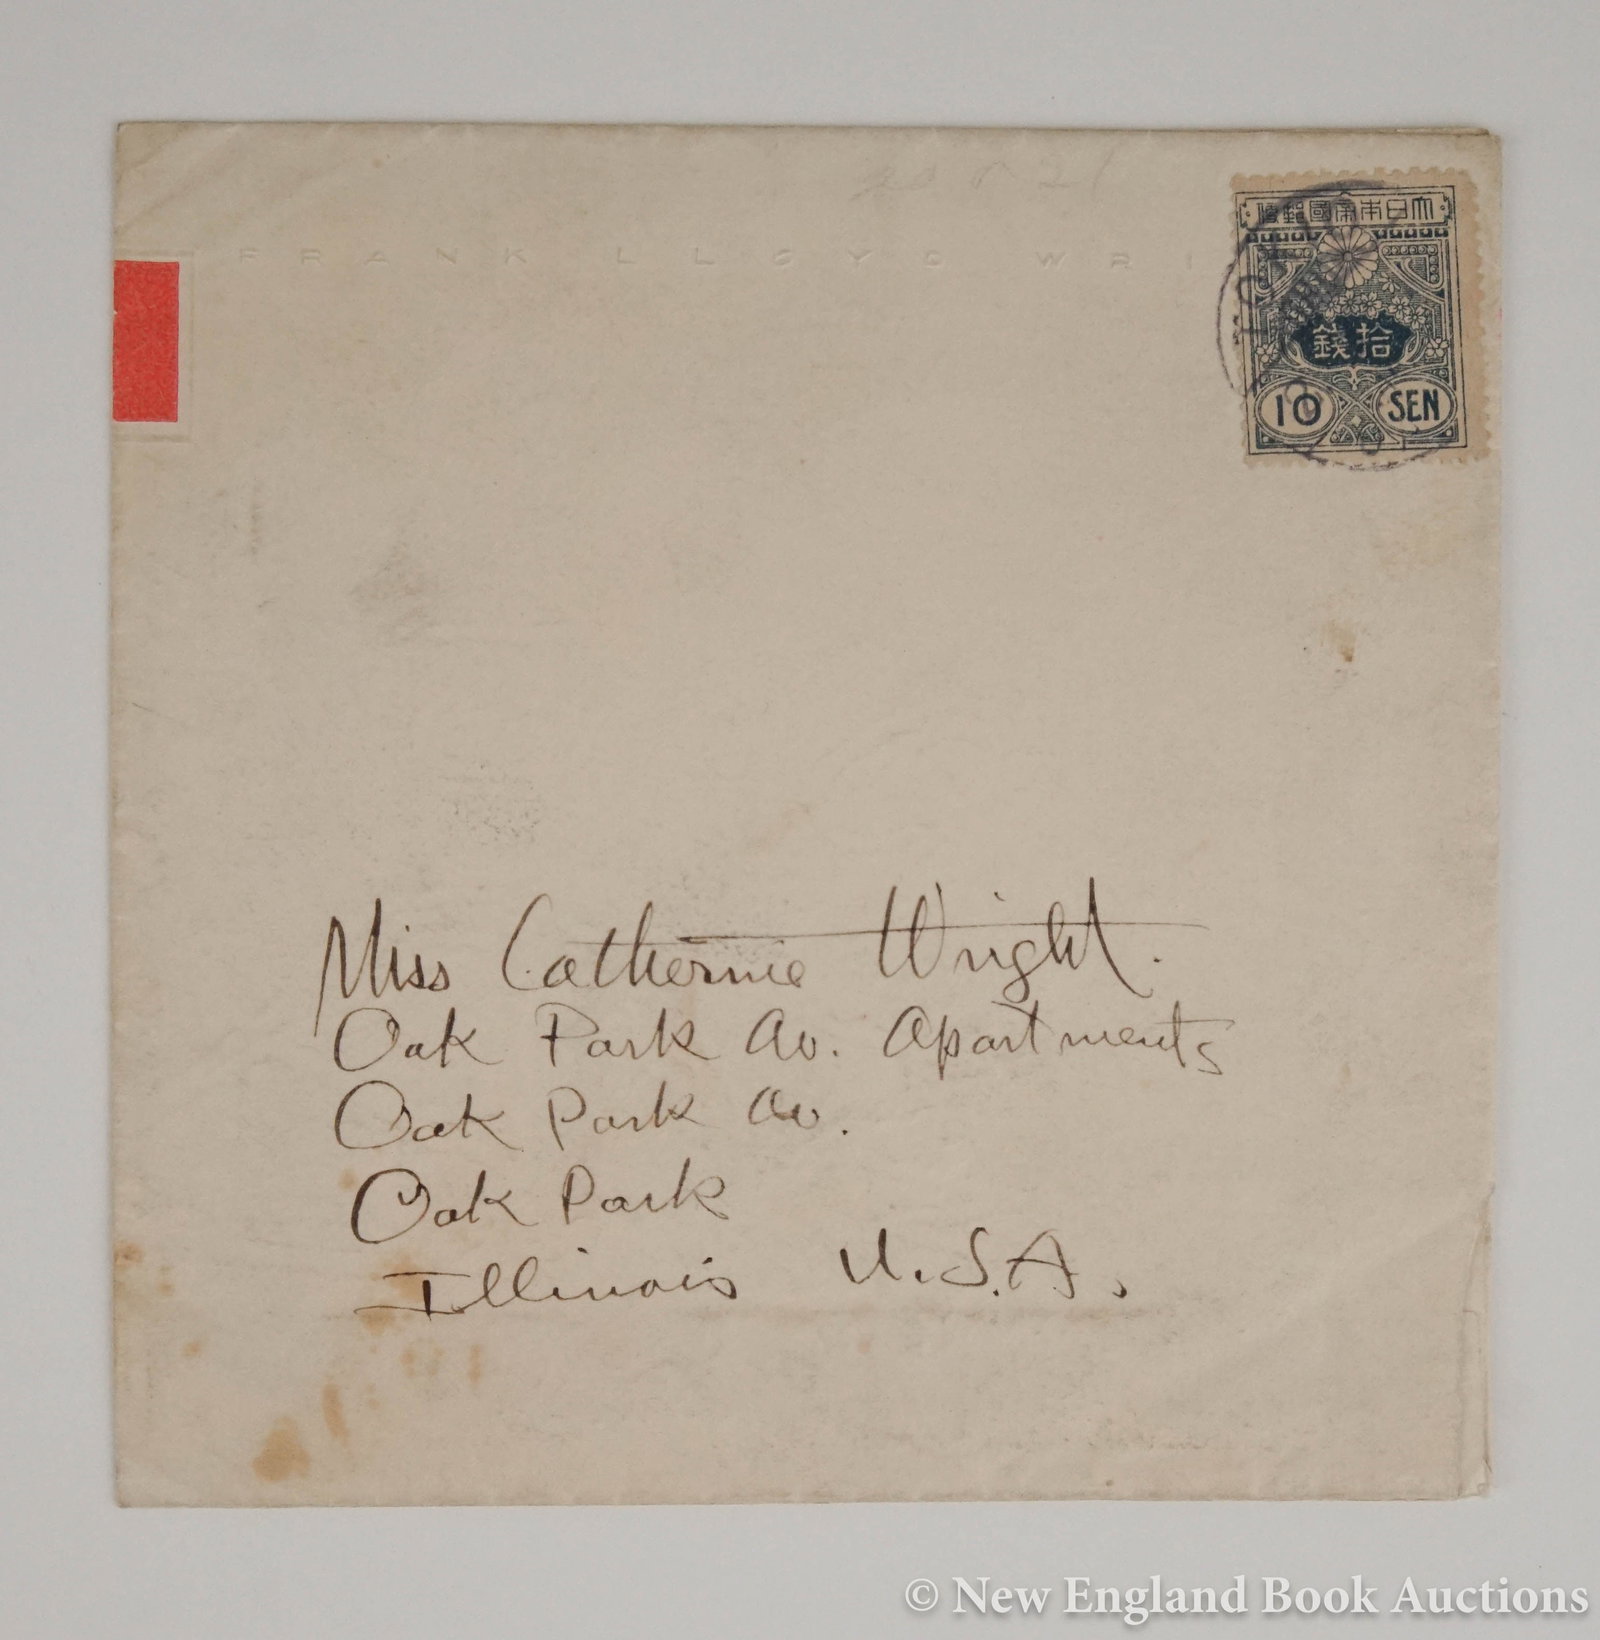 FRANK LLOYD WRI
大日本帝國郵便
拾錢
10 SEN
Miss Catherine Wright.
Oak Park Av. Apartments
Oak Park Av.
Oak Park
Illinois U.S.A.
© New England Book Auctions